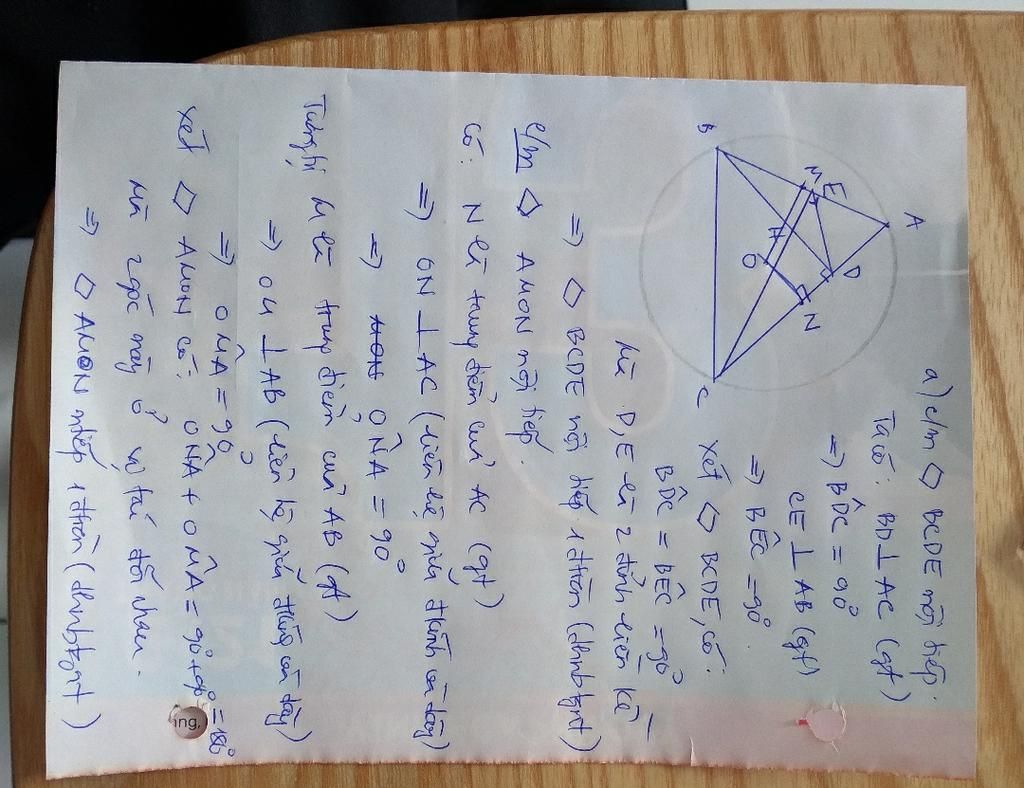 a) c/m ◇ BCDE nội tiếp.
Ta có: BD ⊥ AC (gt)
=> BD̂C = 90°
CE ⊥ AB (gt)
=> BÊC = 90°.
Xét ◇ BCDE, có:
BD̂C = BÊC = 90°
Mà D, E là 2 đỉnh liên kề
=> ◇ BCDE nội tiếp 1 đtròn (dhnbtgnt)
A
B
M
E
D
H
O
N
C
c/m ◇ AMON nội tiếp.
Có: N là trung điểm của AC (gt)
=> ON ⊥ AC (liên hệ giữa đkính và dây)
=> ON̂A = 90°
Tương tự M là trung điểm của AB (gt)
=> OM ⊥ AB (liên hệ giữa đkính và dây)
=> OM̂A = 90°
Xét ◇ AMON có: ON̂A + OM̂A = 90° + 90° = 180°
Mà 2 góc này ở vị trí đối nhau.
=> ◇ AMON ntiếp 1 đtròn (dhnbtgnt)
ing,